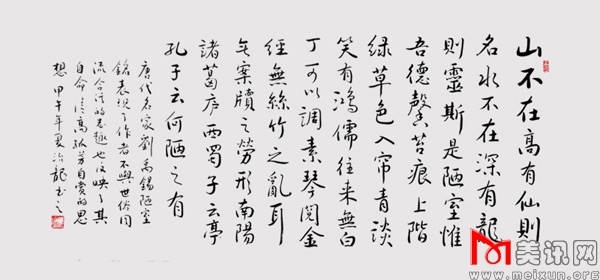 山不在高有仙則
名水不在深有龍
則靈斯是陋室惟
吾德馨苔痕上階
绿草色入帘青談
笑有鴻儒往来無白
丁可以調素琴閲金
經無絲竹之亂耳
无案牘之勞形南陽
諸葛庐西蜀子云亭
孔子云何陋之有
唐代名家劉禹錫陋室
銘表現了作者不與世俗同
流合污的志趣也反映了其
自命清高孤芳自賞的思
想甲午年夏治龍书之
美讯网
www.meixun.org